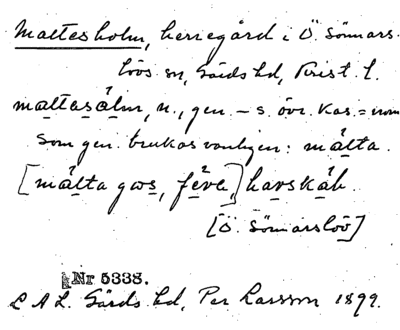 Maltesholm, herregård i Ö. Sönnars-
lövs sn, Gärds hd, Krist. l.
maltasålm, n., gen. – s. övr. kas. = nom
Som gen. brukas vanligen: målta.
[målta gɷs, fɛ̊re,] havskåb.
[Ö. Sönnarslöv]
Nr 5338.
L A L. Gärds hd, Per Larsson 1899.